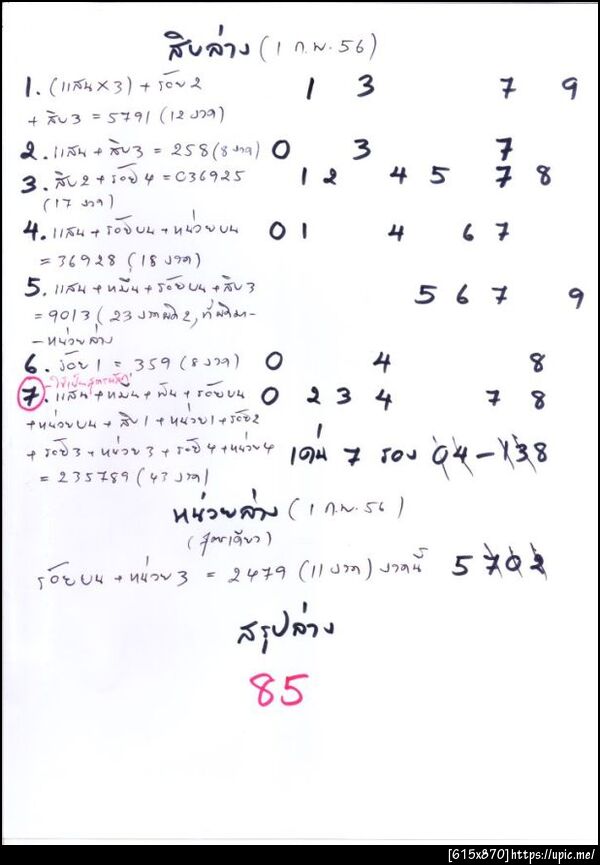 สิบล่าง (1 ก.พ. 56)
1. (แสน×3) + ร้อย2 1 3 7 9
+ สิบ3 = 5791 (12 งวด)
2. แสน + สิบ3 = 258 (8 งวด) 0 3 7
3. สิบ2 + ร้อย4 = 036925 1 2 4 5 7 8
(17 งวด)
4. แสน + ร้อยบน + หน่วยบน 0 1 4 6 7
= 36928 (18 งวด)
5. แสน + หมื่น + ร้อยบน + สิบ3 5 6 7 9
= 9013 (23 งวดผิด2, ที่ผิดมา-
-หน่วยล่าง
6. ร้อย1 = 359 (8 งวด) 0 4 8
-ใช้เป็นสูตรหลัก
7. แสน + หมื่น + พัน + ร้อยบน 0 2 3 4 7 8
+หน่วยบน + สิบ1 + หน่วย1 + ร้อย2
+ ร้อย3 + หน่วย3 + ร้อย4 + หน่วย4 เด่น 7 รอง 04-138
= 235789 (43 งวด)
หน่วยล่าง (1 ก.พ. 56)
(สูตรเดียว)
ร้อยบน + หน่วย3 = 2479 (11 งวด) งวดนี้ 5702
สรุปล่าง
85
[615x870]https://upic.me/